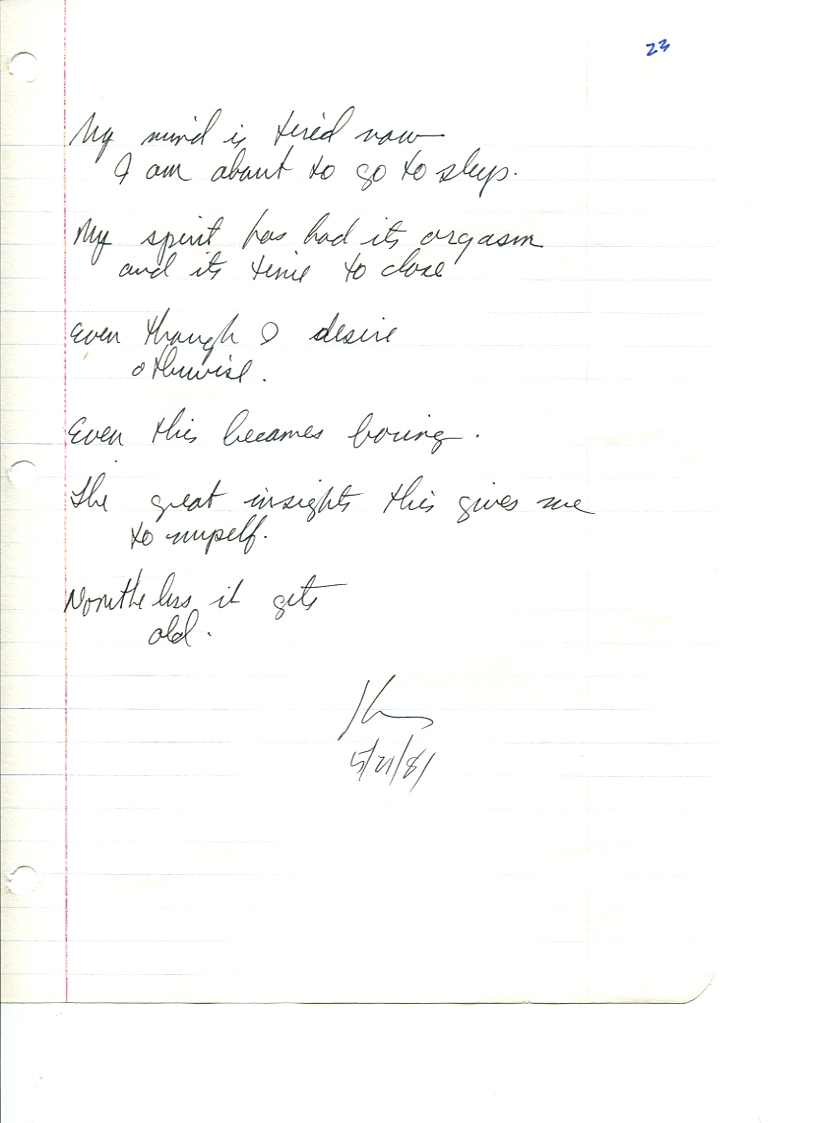 23
My mind is tired now
I am about to go to sleep.
My spirit has had its orgasm
and its time to close
Even though I desire
otherwise.
Even this becomes boring.
The great insights this gives me
to myself.
Nonetheless it gets
old.
5/21/81